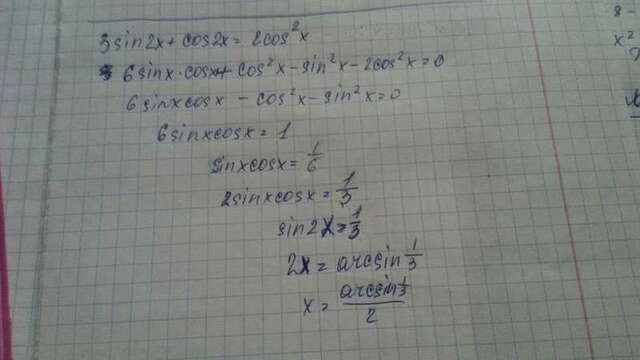 3sin2x + cos2x = 2cos²x
6sinx·cosx + cos²x - sin²x - 2cos²x = 0
6sinxcosx - cos²x - sin²x = 0
6sinxcosx = 1
sinxcosx = 1/6
2sinxcosx = 1/3
sin2x = 1/3
2x = arcsin 1/3
x = arcsin 1/3 / 2
8 -
x²